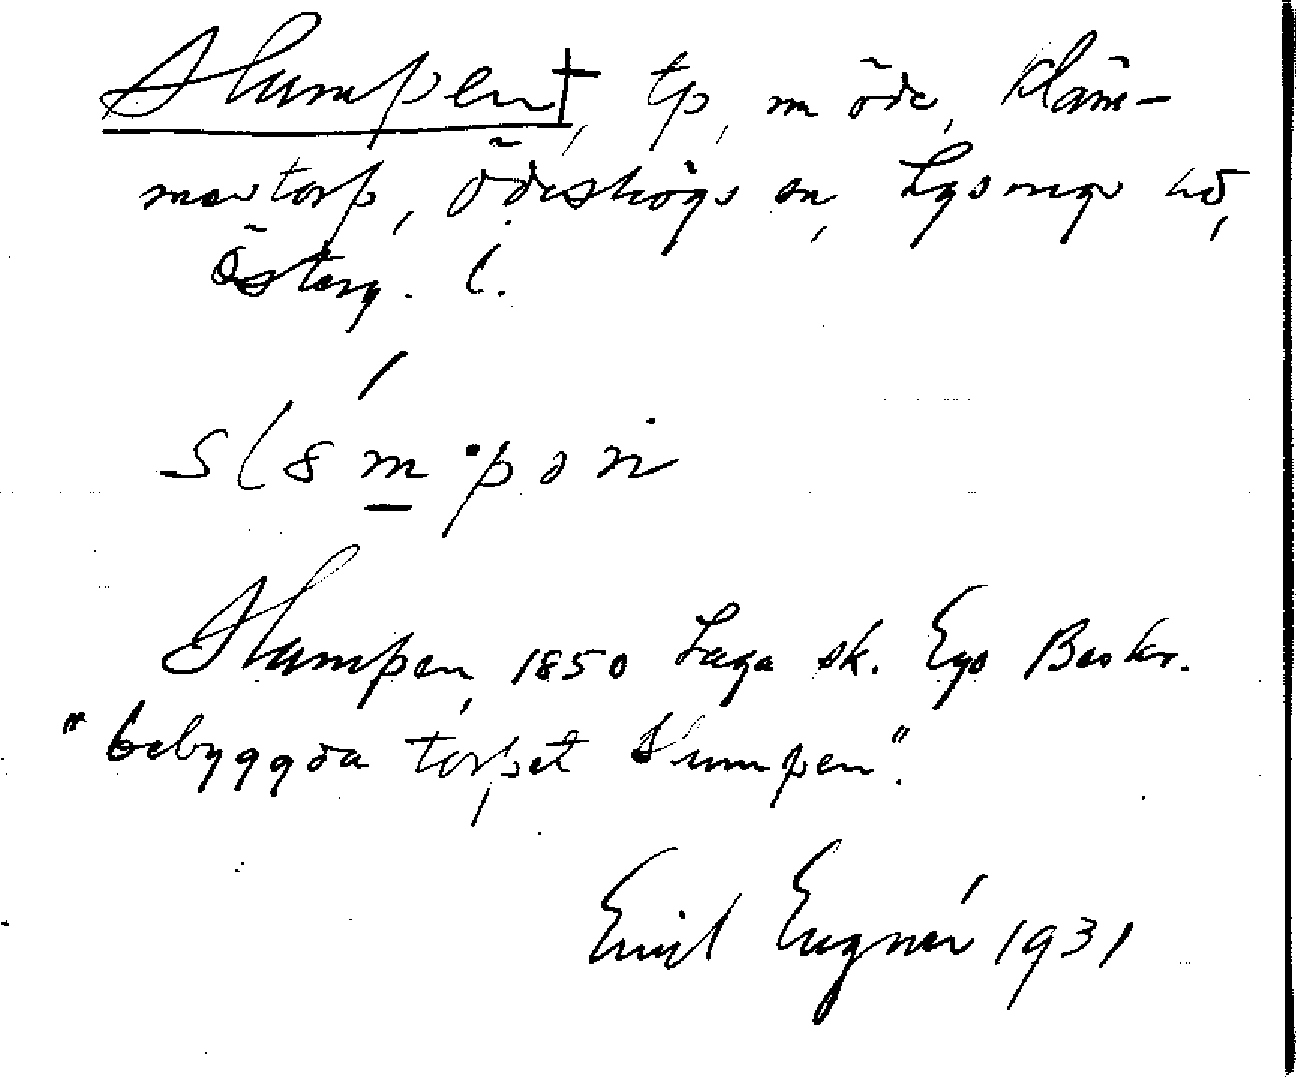 Slumpen†, tp, nu öde, Kläm-
mestorp, Ödeshögs sn, Lysings hd,
Österg. l.
Slumpen, 1850 Laga sk. Ego Beskr.
"bebyggda torpet Slumpen".
Emil Eugnér 1931